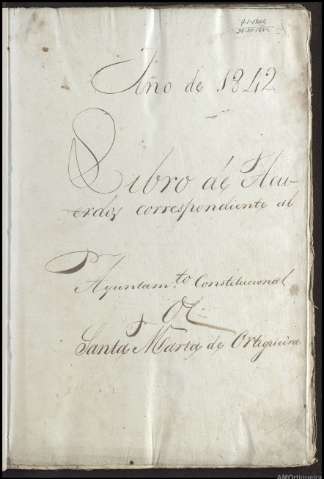 Año de 1842
Libro de Acu-
erdos correspondiente al
Ayuntam.to Constitucional
De
Santa Maria de Ortigueira
AMOrtigueira